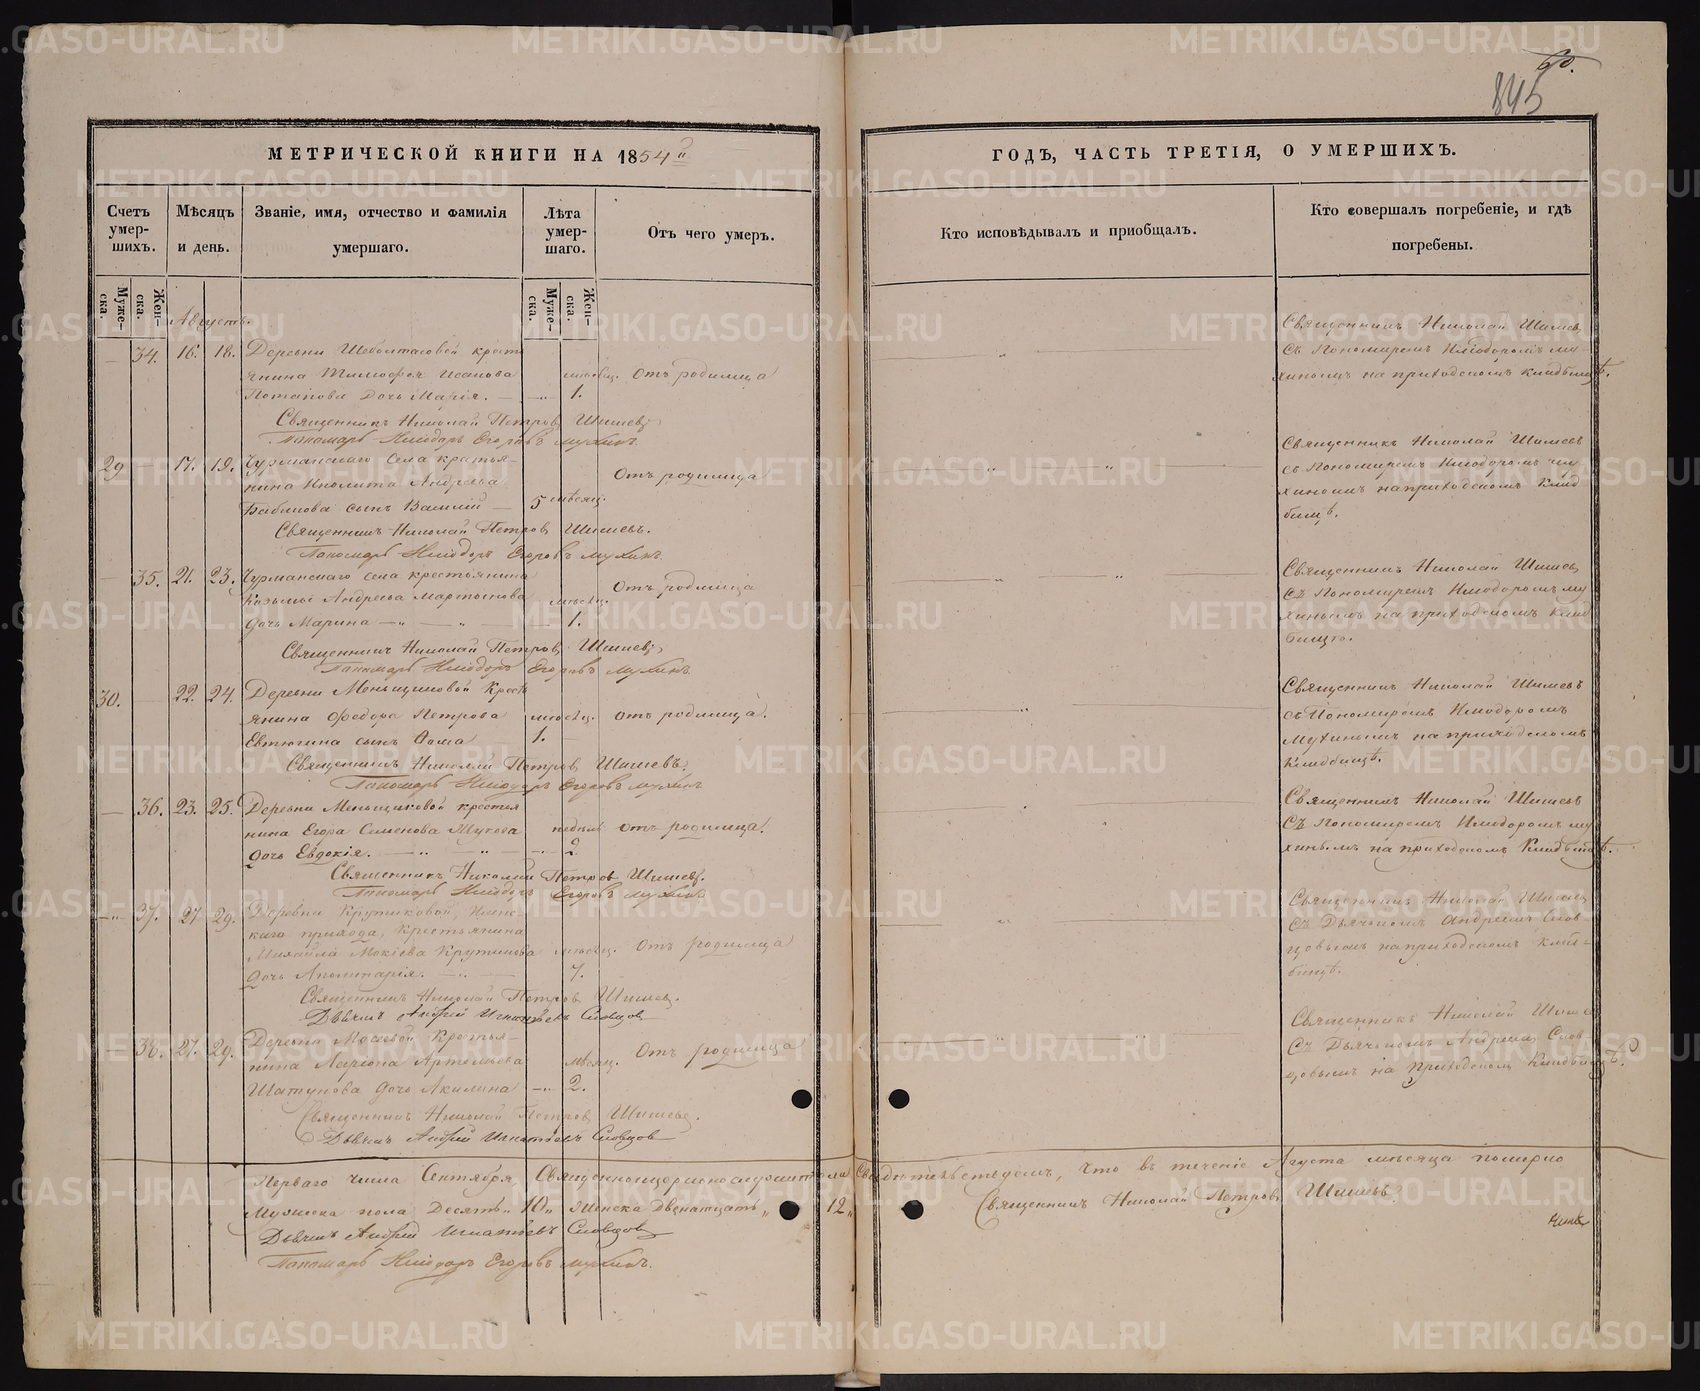 60.
845
МЕТРИЧЕСКОЙ КНИГИ НА 1854й
ГОДЪ, ЧАСТЬ ТРЕТІЯ, О УМЕРШИХЪ.
Счетъ умер-шихъ.
Мѣсяцъ и день.
Званіе, имя, отчество и фамилія умершаго.
Лѣта умер-шаго.
Отъ чего умеръ.
Кто исповѣдывалъ и приобщалъ.
Кто совершалъ погребеніе, и гдѣ погребены.
Муже-ска.
Жен-ска.
Муже-ска.
Жен-ска.
Августъ.
34. 16. 18. Деревни крестъ
янина Тимофея Исакова мѣсяц. Отъ родимца
Потапова дочь Марія. 1.
Священникъ Николай Петровъ Шишевъ
Пономарь Егоровъ Мухинъ
Священникъ Николай Шишевъ
съ Пономаремъ Му
хинымъ на приходскомъ кладбищѣ.
29 17. 19. Чурманскаго села крестья-
нина Иполита Андреева Отъ родимца
Бабинова сынъ Василій 5 мѣсяц.
Священникъ Николай Петровъ Шишевъ.
Пономарь Егоровъ Мухинъ
Священникъ Николай Шишевъ
съ Пономаремъ Му
хинымъ на приходскомъ клад
бищѣ.
35. 21. 23. Чурманскаго села крестьянина
Козьмы Андреева Мартынова мѣсяц. Отъ родимца
дочь Марина 1.
Священникъ Николай Петровъ Шишевъ
Пономарь Егоровъ Мухинъ
Священникъ Николай Шишевъ
съ Пономаремъ Му
хинымъ на приходскомъ клад
бищѣ.
30. 22. 24. Деревни Меньщиковой Кресть
янина Федора Петрова мѣсяц. отъ родимца.
Евтюгина сынъ Фома 1.
Священникъ Николай Петровъ Шишевъ.
Пономарь Егоровъ Мухинъ
Священникъ Николай Шишевъ
съ Пономаремъ
Мухинымъ на приходскомъ
Кладбищѣ.
36. 23. 25. Деревни Меньщиковой крестья
нина Егора Семенова недѣль отъ родимца.
дочь Евдокія. 2
Священникъ Николай Петровъ Шишевъ.
Пономарь Егоровъ Мухинъ
Священникъ Николай Шишевъ
съ Пономаремъ Му
хинымъ на приходскомъ Кладбищѣ.
37. 27. 29. Деревни Крутиковой,
каго прихода, Крестьянина
Михайла Мокіева Крутикова мѣсяц. Отъ родимца
дочь Аполинарія. 7.
Священникъ Николай Петровъ Шишевъ.
Дьячекъ Андрей Игнатьевъ Словцовъ
Священникъ Николай Шишевъ
съ Дьячкомъ Андреемъ Слов
цовымъ на приходскомъ клад-
бищѣ.
38. 27. 29. Деревни Мосеевой Крестья-
нина Ларіона Артемьева мѣсяц. Отъ родимца
Шатунова дочь Акилина 2.
Священникъ Николай Петровъ Шишевъ.
Дьячекъ Андрей Игнатьевъ Словцовъ
Священникъ Николай Шише
съ Дьячкомъ Андреем Слов
цовымъ на Приходскомъ Кладбищѣ.
Перваго числа Сентября Священноцерковнослужители Свидѣтельствуемъ, что въ теченіе Августа мѣсяца померло
Мужеска пола Десять 10 Женска Двенатцать 12
Священникъ Николай Петровъ Шишевъ
Дьячекъ Андрей Игнатьевъ Словцовъ
Пономарь Егоровъ Мухинъ.
METRIKI.GASO-URAL.RU